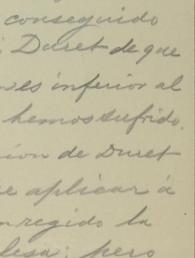 conseguido
Duret de que
es inferior al
hemos sufrido.
ion de Duret
e aplicar á
regido la
lesa; pero